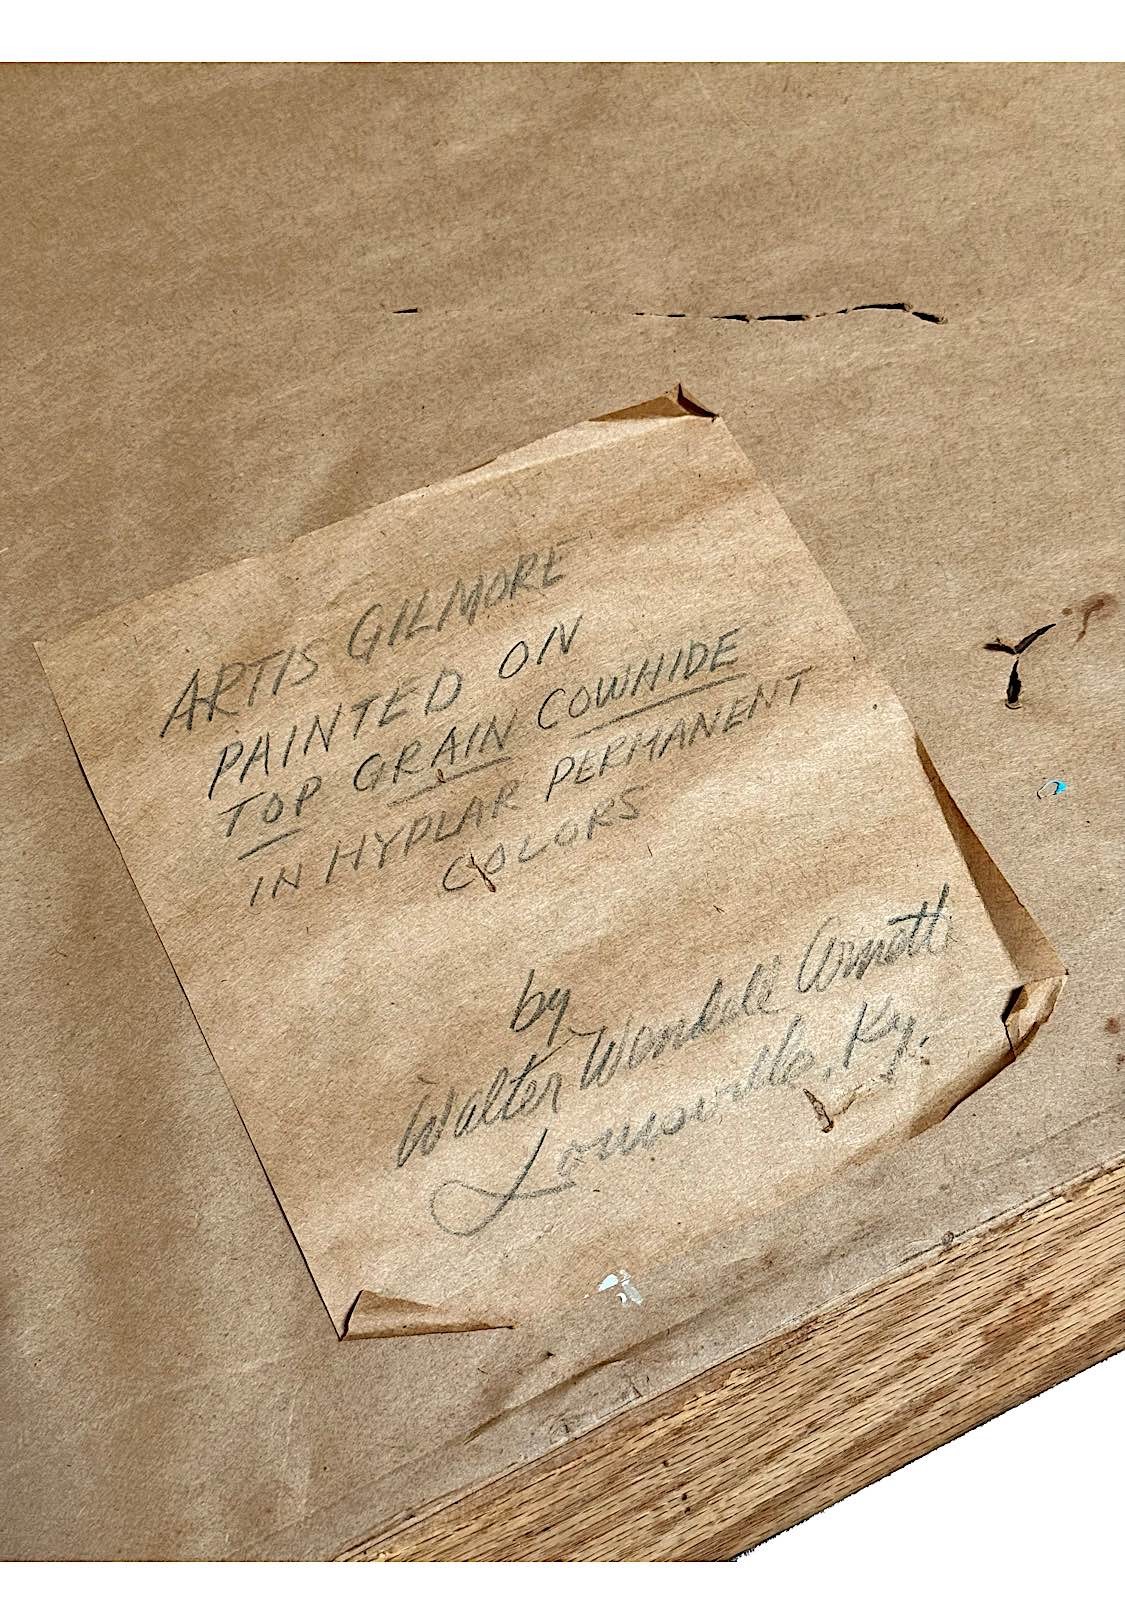 ARTIS GILMORE
PAINTED ON
TOP GRAIN COWHIDE
IN HYPLAR PERMANENT
COLORS
by
Walter Wendell Arnett
Louisville, Ky.